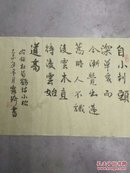 自小刺頭
深草裏而
今漸覺出蓬
蒿時人不識
凌雲木直
待凌雲始
道高
杜荀鶴詩小松